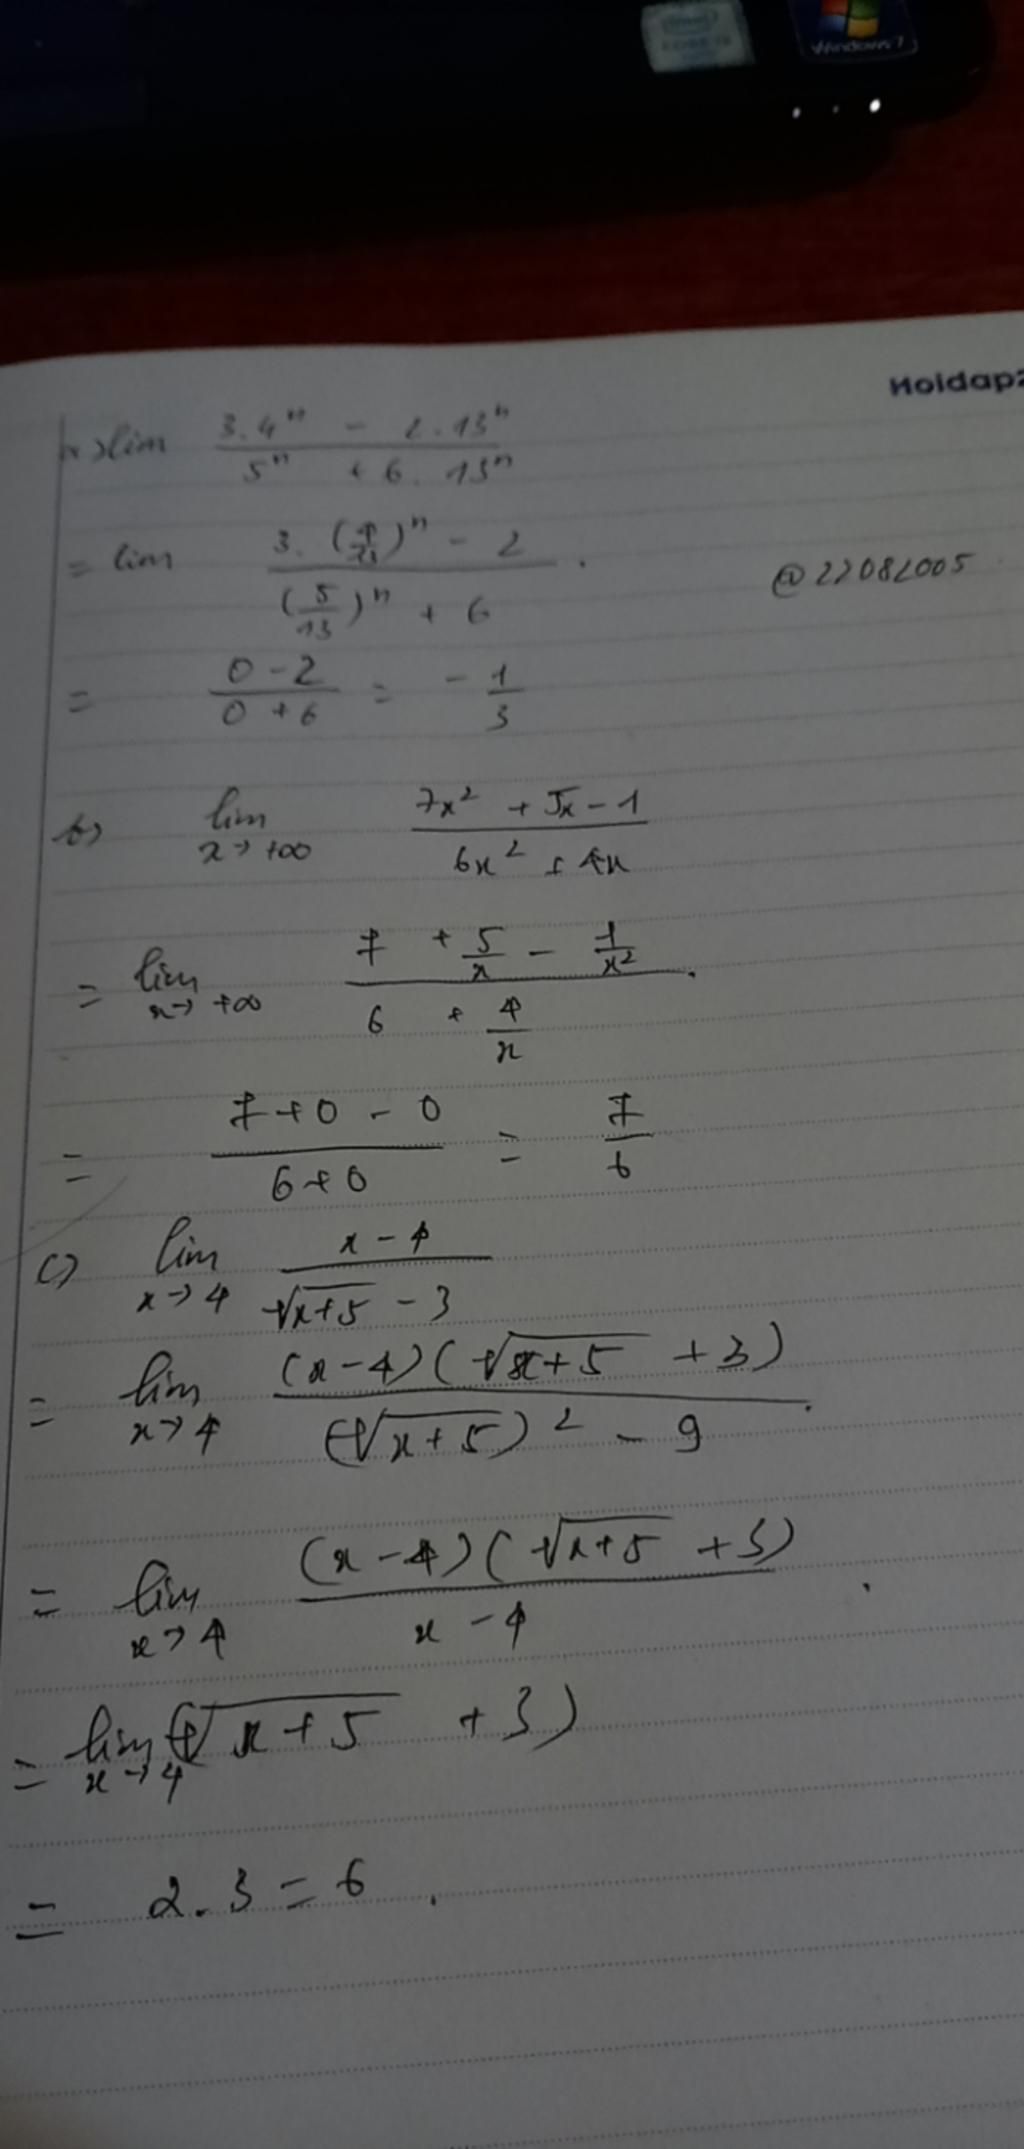 intel
CORE i3
Windows 7
Hoidap2
a) lim (3.4ⁿ - 2.13ⁿ) / (5ⁿ + 6.13ⁿ)
= lim (3.(4/13)ⁿ - 2) / ((5/13)ⁿ + 6).
@22082005
= (0 - 2) / (0 + 6) = - 1/3
b) lim x→+∞ (7x² + 5x - 1) / (6x² + 4x)
= lim x→+∞ (7 + 5/x - 1/x²) / (6 + 4/x).
= (7 + 0 - 0) / (6 + 0) = 7/6
c) lim x→4 (x - 4) / (√(x+5) - 3)
= lim x→4 (x - 4)(√(x+5) + 3) / ((√(x+5))² - 9).
= lim x→4 (x - 4)(√(x+5) + 3) / (x - 4).
= lim x→4 (√(x+5) + 3)
= 2.3 = 6.